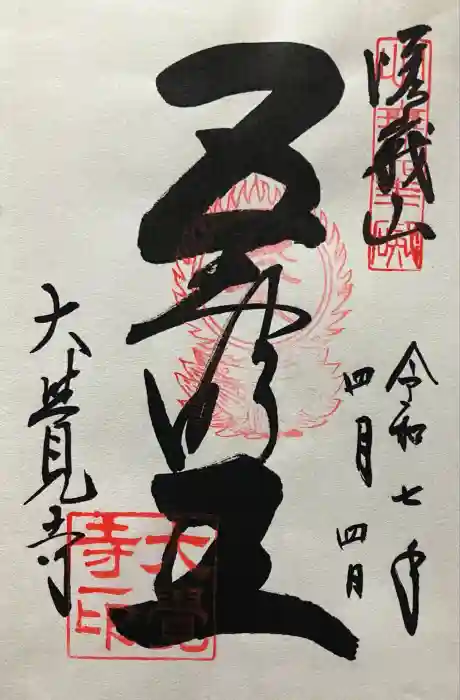 嵯峩山
令和七年
四月四日
五大明王
大覺寺
大覺
寺印